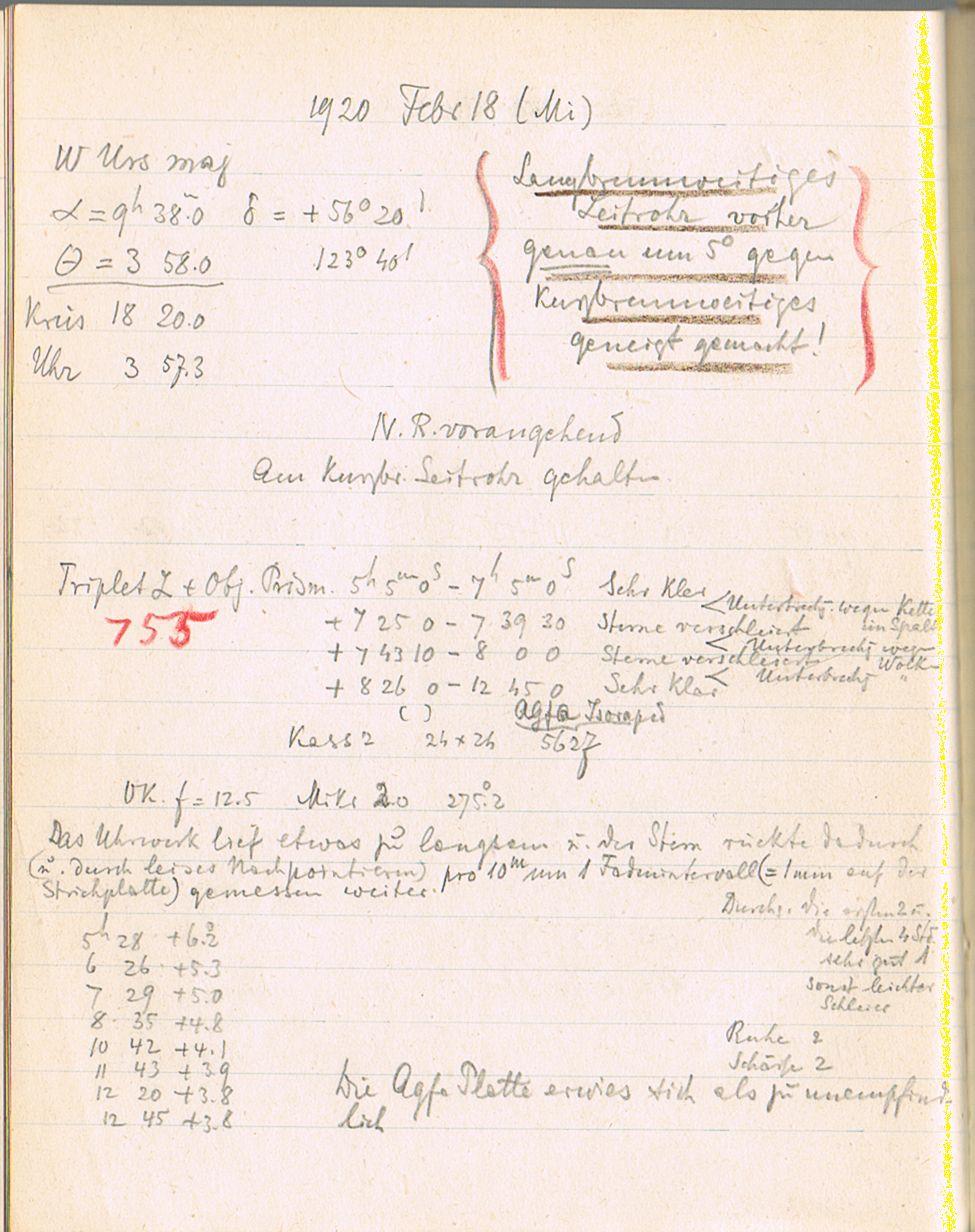 1920 Febr 18 (Mi)
W Urs maj
α = 9h 38.m0 δ = +56° 20'
Θ = 3 58.0 123° 40'
Kreis 18 20.0
Uhr 3 57.3
Langbrennweitiges
Leitrohr vorher
genau um 5° gegen
Kurzbrennweitiges
geneigt gemacht!
N. R. vorangehend
Am Kurzbr. Leitrohr gehalten
Triplet Z + Obj. Prism. 5h 5m 0s – 7h 5m 0s Sehr Klar
Unterbrechg. wegen Kette
im Spalt
755
+ 7 25 0 – 7 39 30 Sterne verschleiert
Unterbrechg wegen
Wolken
+ 7 43 10 – 8 0 0 Sterne verschleiert
Unterbrechg "
+ 8 26 0 – 12 45 0 Sehr Klar
( ) Agfa Isorapid
Kass 2 24 × 24 5627
OK. f = 12.5 Mikr 2.0 275.°2
Das Uhrwerk lief etwas zu langsam u. der Stern rückte dadurch
(u. durch leises Nachpointieren) pro 10m um 1 Fadenintervall (= 1mm auf der
Strichplatte) gemessen weiter.
Durchs. die ersten 2 u.
die letzten 4 Std
sehr gut 1
sonst leichter
Schleier
Ruhe 2
Schärfe 2
5h 28 +6.°2
6 26 +5.3
7 29 +5.0
8 35 +4.8
10 42 +4.1
11 43 +3.9
12 20 +3.8
12 45 +3.8
Die Agfa Platte erwies sich als zu unempfind-
lich